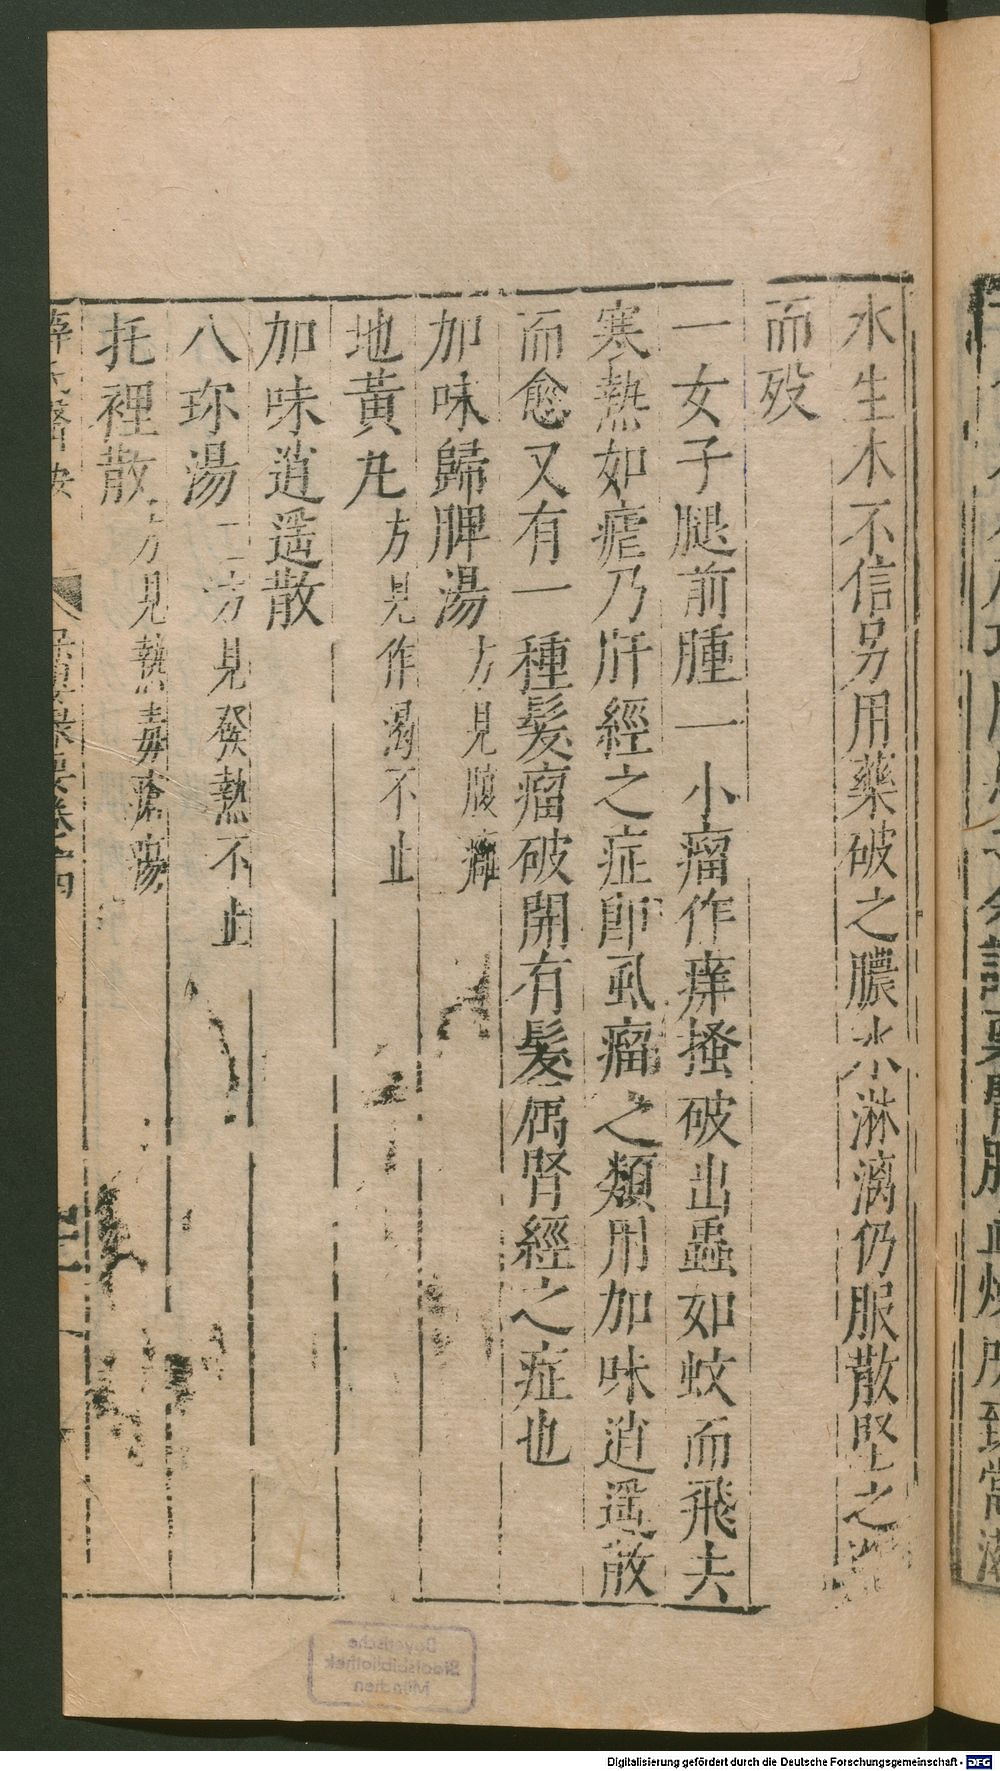 水生木不信另用藥破之膿水淋漓仍服散堅之
而歿
一女子腿前腫一小瘤作痒搔破出蟲如蚊而飛去
寒熱如瘧乃肝經之症卽虱瘤之類用加味逍遥散
而愈又有一種髮瘤破開有髮属腎經之症也
加味歸脾湯 方見腹癰
地黃丸 方見作渴不止
加味逍遥散
八珎湯 二方見發熱不止
托裡散 方見熱毒瘡瘍
薛氏醫按 保嬰撮要卷十四
Digitalisierung gefördert durch die Deutsche Forschungsgemeinschaft - DFG
Bayerische
Staatsbibliothek
München